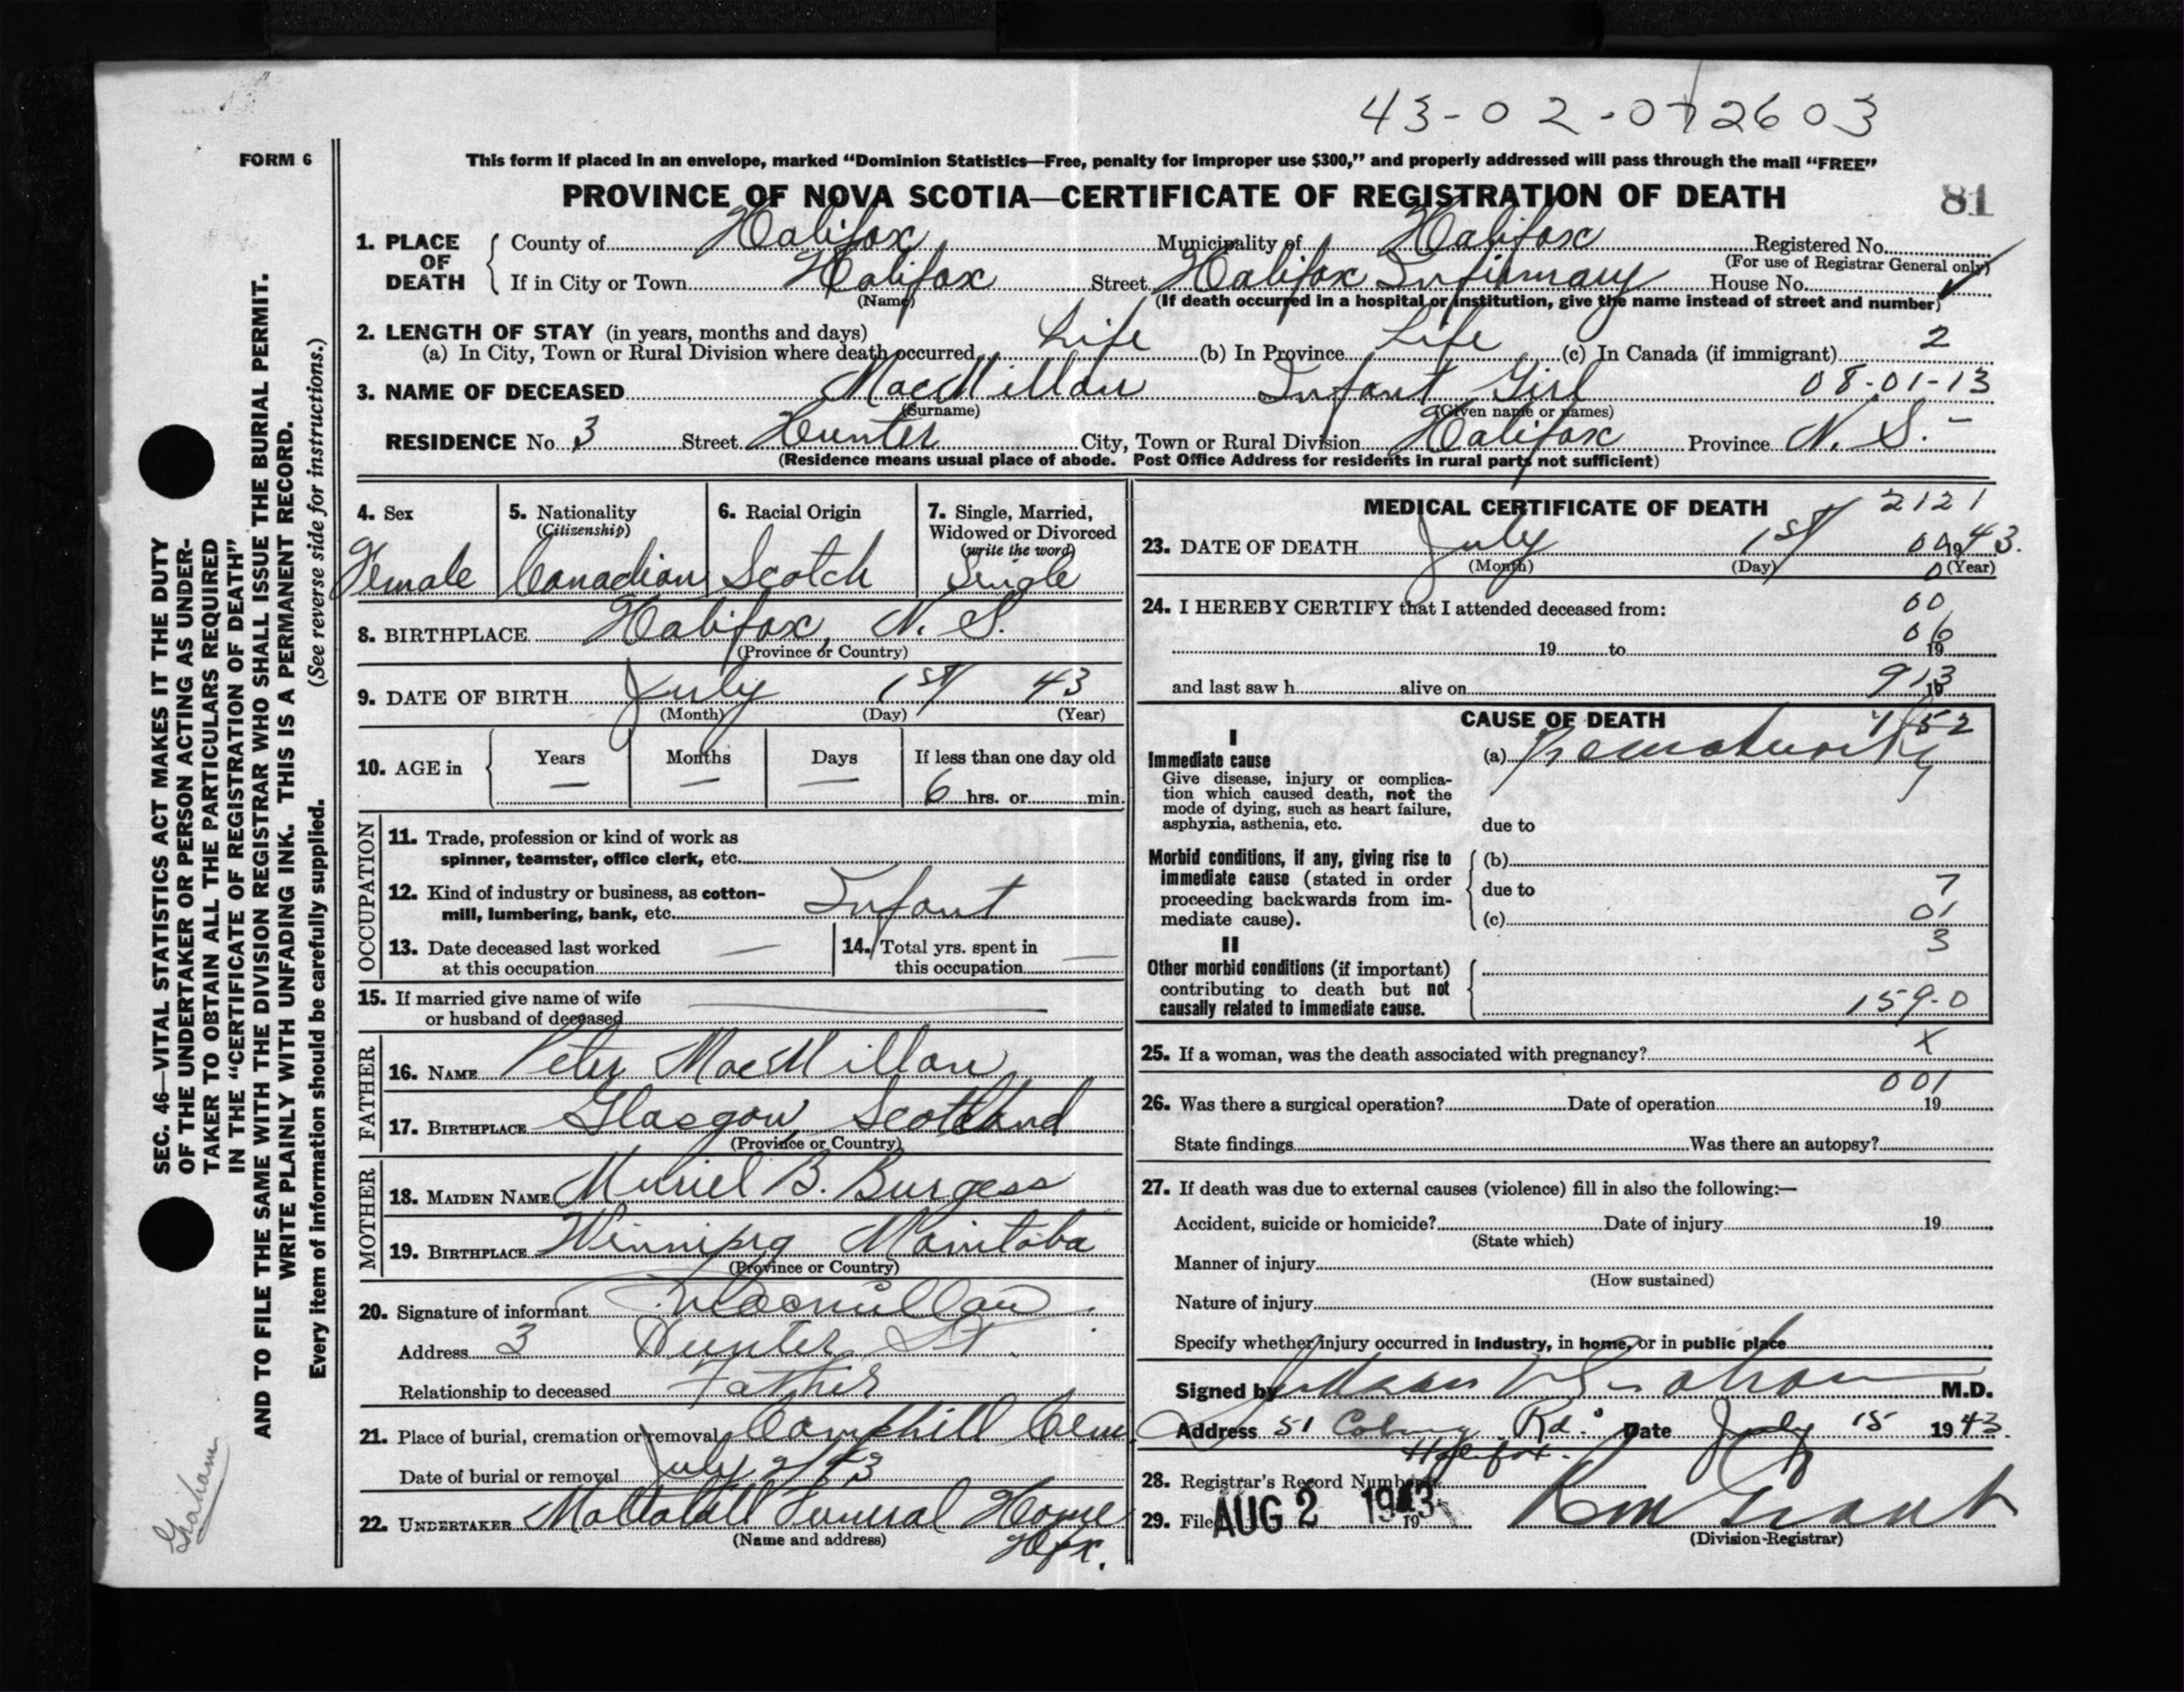 43-02-072603
FORM 6
This form if placed in an envelope, marked “Dominion Statistics—Free, penalty for improper use $300,” and properly addressed will pass through the mail “FREE”
PROVINCE OF NOVA SCOTIA—CERTIFICATE OF REGISTRATION OF DEATH 81
1. PLACE OF DEATH
County of Halifax Municipality of Halifax Registered No.
(For use of Registrar General only)
If in City or Town Halifax Street Halifax Infirmary House No.
(Name) (If death occurred in a hospital or institution, give the name instead of street and number)
2. LENGTH OF STAY (in years, months and days)
(a) In City, Town or Rural Division where death occurred Life (b) In Province Life (c) In Canada (if immigrant) 2
3. NAME OF DECEASED MacMillan Infant Girl 08-01-13
(Surname) (Given name or names)
RESIDENCE No. 3 Street Hunter City, Town or Rural Division Halifax Province N. S.
(Residence means usual place of abode. Post Office Address for residents in rural parts not sufficient)
4. Sex
Female
5. Nationality
(Citizenship)
Canadian
6. Racial Origin
Scotch
7. Single, Married,
Widowed or Divorced
(write the word)
Single
8. BIRTHPLACE Halifax, N. S.
(Province or Country)
9. DATE OF BIRTH July 1st 43
(Month) (Day) (Year)
10. AGE in
Years Months Days If less than one day old
— — — 6 hrs. or min.
OCCUPATION
11. Trade, profession or kind of work as
spinner, teamster, office clerk, etc.
12. Kind of industry or business, as cotton-
mill, lumbering, bank, etc. Infant
13. Date deceased last worked
at this occupation —
14. Total yrs. spent in
this occupation —
15. If married give name of wife
or husband of deceased —
FATHER
16. NAME Peter MacMillan
17. BIRTHPLACE Glasgow, Scotland
(Province or Country)
MOTHER
18. MAIDEN NAME Muriel B. Burgess
19. BIRTHPLACE Winnipeg Manitoba
(Province or Country)
20. Signature of informant Macmillan
Address 3 Hunter St.
Relationship to deceased Father
21. Place of burial, cremation or removal Camphill Cem.
Date of burial or removal July 2/43
22. UNDERTAKER Mattatall Funeral Home
(Name and address) Hfx.
MEDICAL CERTIFICATE OF DEATH 2121
23. DATE OF DEATH July 1st 1943.
(Month) (Day) (Year)
24. I HEREBY CERTIFY that I attended deceased from:
00
06
19 to 19
and last saw h alive on 19
913
CAUSE OF DEATH
I
Immediate cause
(a) Prematurity
Give disease, injury or complica-
tion which caused death, not the
mode of dying, such as heart failure,
asphyxia, asthenia, etc.
due to
Morbid conditions, if any, giving rise to
immediate cause (stated in order
proceeding backwards from im-
mediate cause).
(b)
due to 7
(c) 01
3
II
Other morbid conditions (if important)
contributing to death but not
causally related to immediate cause.
159-0
25. If a woman, was the death associated with pregnancy? X
001
26. Was there a surgical operation? Date of operation 19
State findings Was there an autopsy?
27. If death was due to external causes (violence) fill in also the following:—
Accident, suicide or homicide? Date of injury 19
(State which)
Manner of injury
(How sustained)
Nature of injury
Specify whether injury occurred in industry, in home, or in public place
Signed by Judson V Graham M.D.
Address 51 Coburg Rd. Date July 15 1943.
Halifax.
28. Registrar's Record Number
29. Filed AUG 2 1943 19
(Division-Registrar)
SEC. 46—VITAL STATISTICS ACT MAKES IT THE DUTY
OF THE UNDERTAKER OR PERSON ACTING AS UNDER-
TAKER TO OBTAIN ALL THE PARTICULARS REQUIRED
IN THE “CERTIFICATE OF REGISTRATION OF DEATH”
AND TO FILE THE SAME WITH THE DIVISION REGISTRAR WHO SHALL ISSUE THE BURIAL PERMIT.
WRITE PLAINLY WITH UNFADING INK. THIS IS A PERMANENT RECORD.
Every item of information should be carefully supplied. (See reverse side for instructions.)
Graham